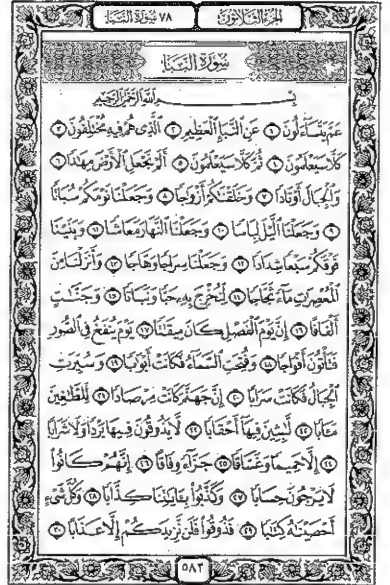 الجزء الثلاثون ٧٨ سورة النبأ
سورة النبأ
بسم الله الرحمن الرحيم
عَمَّ يَتَسَآءَلُونَ ١ عَنِ ٱلنَّبَإِ ٱلْعَظِيمِ ٢ ٱلَّذِى هُمْ فِيهِ مُخْتَلِفُونَ ٣
كَلَّا سَيَعْلَمُونَ ٤ ثُمَّ كَلَّا سَيَعْلَمُونَ ٥ أَلَمْ نَجْعَلِ ٱلْأَرْضَ مِهَٰدًا ٦
وَٱلْجِبَالَ أَوْتَادًا ٧ وَخَلَقْنَٰكُمْ أَزْوَٰجًا ٨ وَجَعَلْنَا نَوْمَكُمْ سُبَاتًا
٩ وَجَعَلْنَا ٱلَّيْلَ لِبَاسًا ١٠ وَجَعَلْنَا ٱلنَّهَارَ مَعَاشًا ١١ وَبَنَيْنَا
فَوْقَكُمْ سَبْعًا شِدَادًا ١٢ وَجَعَلْنَا سِرَاجًا وَهَّاجًا ١٣ وَأَنزَلْنَا مِنَ
ٱلْمُعْصِرَٰتِ مَآءً ثَجَّاجًا ١٤ لِّنُخْرِجَ بِهِۦ حَبًّا وَنَبَاتًا ١٥ وَجَنَّٰتٍ
أَلْفَافًا ١٦ إِنَّ يَوْمَ ٱلْفَصْلِ كَانَ مِيقَٰتًا ١٧ يَوْمَ يُنفَخُ فِى ٱلصُّورِ
فَتَأْتُونَ أَفْوَاجًا ١٨ وَفُتِحَتِ ٱلسَّمَآءُ فَكَانَتْ أَبْوَٰبًا ١٩ وَسُيِّرَتِ
ٱلْجِبَالُ فَكَانَتْ سَرَابًا ٢٠ إِنَّ جَهَنَّمَ كَانَتْ مِرْصَادًا ٢١ لِّلطَّٰغِينَ
مَـَٔابًا ٢٢ لَّٰبِثِينَ فِيهَآ أَحْقَابًا ٢٣ لَّا يَذُوقُونَ فِيهَا بَرْدًا وَلَا شَرَابًا
٢٤ إِلَّا حَمِيمًا وَغَسَّاقًا ٢٥ جَزَآءً وِفَاقًا ٢٦ إِنَّهُمْ كَانُوا۟
لَا يَرْجُونَ حِسَابًا ٢٧ وَكَذَّبُوا۟ بِـَٔايَٰتِنَا كِذَّابًا ٢٨ وَكُلَّ شَىْءٍ
أَحْصَيْنَٰهُ كِتَٰبًا ٢٩ فَذُوقُوا۟ فَلَن نَّزِيدَكُمْ إِلَّا عَذَابًا ٣٠
٥٨٢